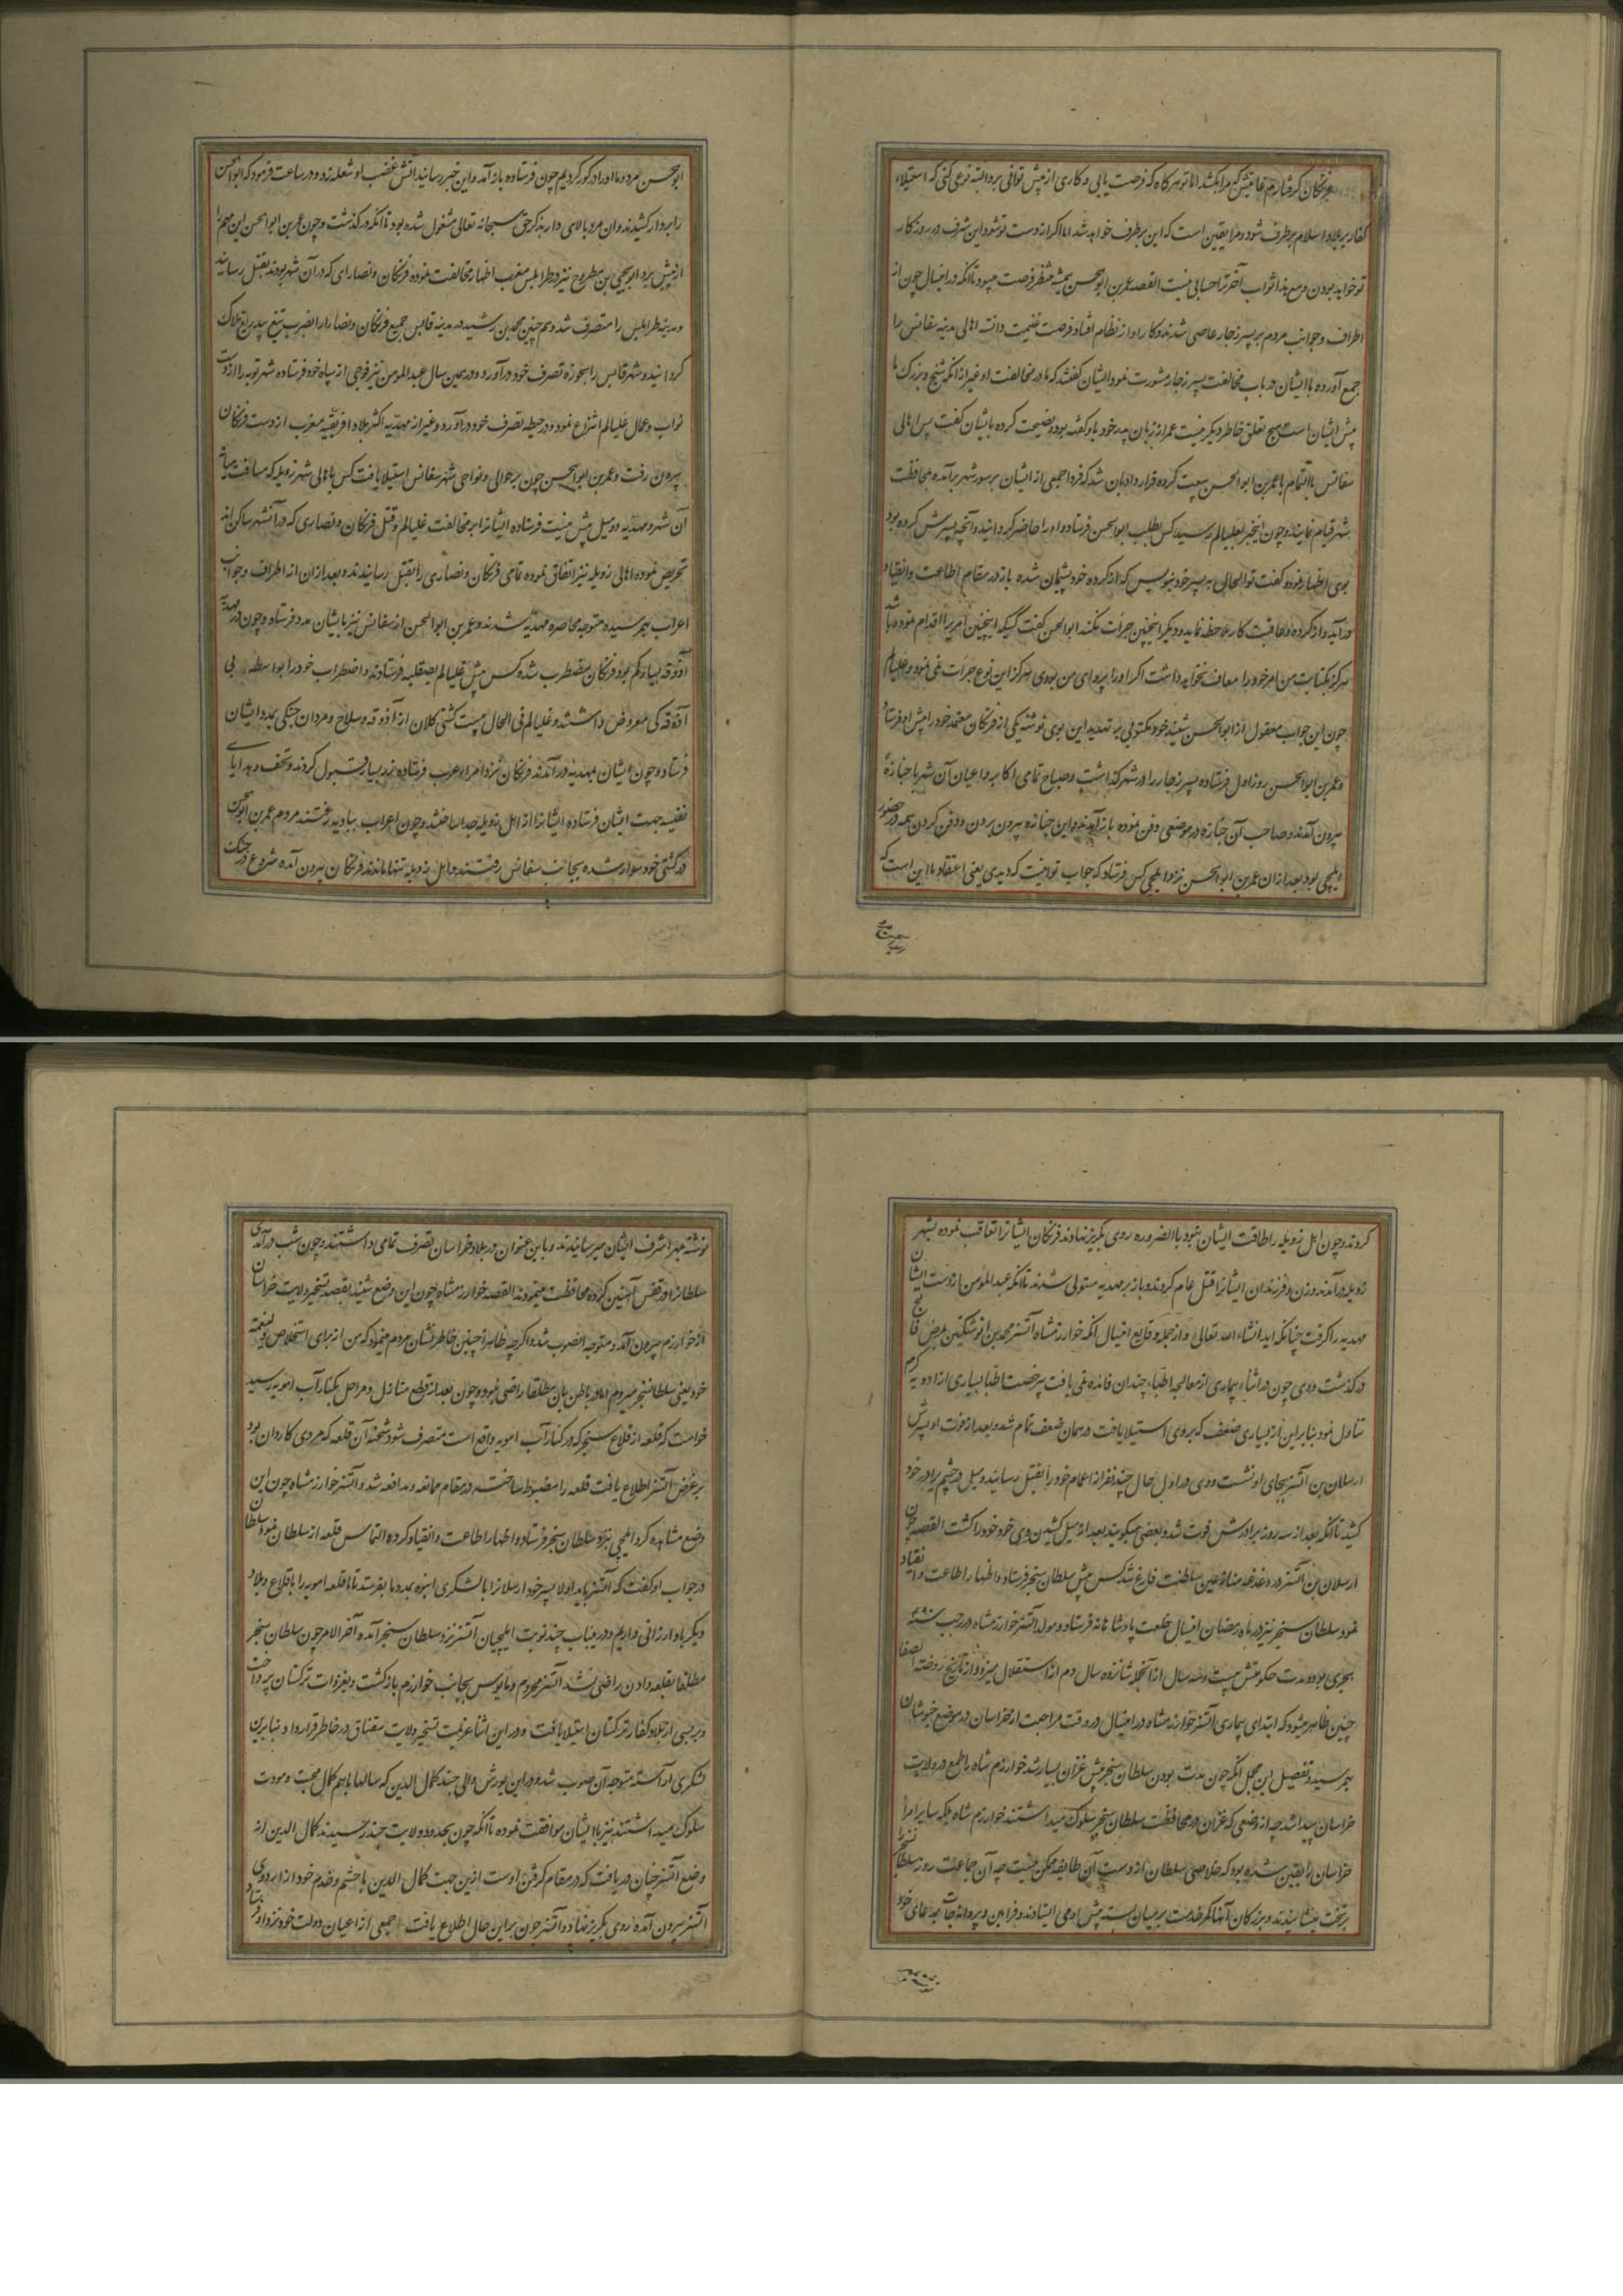 فرنکان کرفتارم غایتش که مرا بکشد اما تو هرکاه که فرصت یابی و کاری از پیش توانی برد البته نوعی کنی که استیلاء
کفار بر بلاد اسلام برطرف شود و مرا یقین است که این برطرف خواهد شد اما اکر از دست تو شود این شرف در روزکار
تو خواهد بودن و مع هذا ثواب آخرت را حسابی نیست القصه عمر بن ابو الحسن همیشه منتظر فرصت میبود تا آنکه در اینسال چون از
اطراف و جوانب مردم بر پسر زجار عاصی شدند و کار او از نظام افتاد فرصت غنیمت دانسته اهالی مدینه سفاقس را
جمع آورده با ایشان در باب مخالفت پسر زجار مشورت نمود ایشان کفتند که ما در مخالفت او غیر از آنکه شیخ و بزرک ما
پیش ایشان است هیچ تعلق خاطر دیکر نیست عمر از زبان پدر خود باو کفته بود و نصیحت کرده بایشان کفت پس اهالی
سفاقس بالتمام با عمر بن ابو الحسن بیعت کرده قرار دادند بان شد که فردا جمعی از ایشان بر سور شهر برآمده و محافظت
شهر قیام نمایند و چون اینخبر بغلیالم رسید کس بطلب ابو الحسن فرستاد و او را حاضر کردانیده و آنچه پسرش کرده بود
بوی اظهار نموده کفت تو الحال به پسر خود بنویس که از کرده خود پشیمان شده باز در مقام اطاعت و انقیاد
در آید و از کرده و عاقبت کار ملاحظه نماید و دیکر اینچنین جرات نکند ابو الحسن کفت کسیکه اینچنین امری را اقدام نموده باشد
هرکز بکتابت من امر خود را معاف نخواهد داشت اکر او را پروای من بودی هرکز این نوع جرات نمی نمود و غلیالم
چون این جواب معقول از ابو الحسن شنید خود مکتوبی پر تهدید این بوی نوشته یکی از فرنکان معتمد خود را پیش او فرستاد
و عمر بن ابو الحسن روز اول فرستاده پسر زجار را در شهر نکذاشت و صباح تمامی اکابر و اعیان آن شهر با جنازهٔ
بیرون آمدند و صاحب آن جنازه در موضعی دفن نموده باز آمدند و این جنازه بیرون بردن و دفن کردن همه در حضور
ایلچی بود بعد از ان عمر بن ابو الحسن نزد ایلچی کس فرستاد که جواب تو اینست که دیدی یعنی اعتقاد ما این است که
ابو الحسن مرد و ما او را در کور کردیم چون فرستاده باز آمد و این خبر رسانید آتش غضب او شعله زد و در ساعت فرمود که ابو الحسن
را بر دار کشیدند و ان مرد بالای دار بذکر حق سبحانه تعالی مشغول شده بود تا آنکه در کذشت و چون عمر بن ابو الحسن این مهم را
از پیش برد ابو یحیی بن مطروح نیز در طرابلس مغرب اظهار مخالفت نموده فرنکان و نصارای که در آن شهر بودند بقتل رسانید
و مدینه طرابلس را متصرف شد و همچنین محمد بن رشید در مدینه قابس جمیع فرنکان و نصارا را بضرب تیغ بیدریغ هلاک
کردانید و شهر قابس را بحوزه تصرف خود در آورد و در همین سال عبد المومن نیز فوجی از سپاه خود فرستاده شهر بونه را از دست
نواب و عمال غلیالم انتزاع نمود و در حیطه تصرف خود در آورد و غیر از مهدیه اکثر بلاد افریقیه مغرب از دست فرنکان
بیرون رفت و عمر بن ابو الحسن چون بر حوالی و نواحی شهر سفاقس استیلا یافت کس باهالی شهر زویله که مسافت میانه
آن شهر و مهدیه دو میل بیش نیست فرستاده ایشانرا بر مخالفت غلیالم و قتل فرنکان و نصاری که در آنشهر ساکن اند
تحریص نموده اهالی زویله نیز اتفاق نموده تمامی فرنکان و نصاری را بقتل رسانیدند و بعد از ان از اطراف و جوانب
اعراب بهم رسیده متوجه محاصره مهدیه شدند و عمر بن ابو الحسن از سفاقس نیز بایشان مدد فرستاد و چون در مهدیه
آذوقه بسیار کم بود فرنکان مضطرب شده کس پیش غلیالم بصقلیه فرستادند و اضطراب خود را بواسطه بی
آذوقه کی معروض داشتند و غلیالم فی الحال بیست کشتی کلان از آذوقه و سلاح و مردان جنکی بمدد ایشان
فرستاد و چون ایشان بمهدیه در آمدند فرنکان نزد امراء عرب فرستاده زر بسیار قبول کردند و تحف و هدایای
نفیسه جهت ایشان فرستاده ایشانرا از اهل زویله جدا ساختند و چون اعراب ببادیه رفتند مردم عمر بن ابو الحسن
در کشتی خود سوار شده بجانب سفاقس رفتند و اهل زویله تنها ماندند فرنکان بیرون آمده شروع در جنک
کردند و چون اهل زویله را طاقت ایشان نبود بالضروره روی بکریز نهادند فرنکان ایشانرا تعاقب نموده بشهر
زویله در آمدند و زن و فرزندان ایشانرا قتل عام کردند و باز بر مهدیه مستولی شدند تا آنکه عبد المؤمن باز از دست ایشان
مهدیه را کرفت چنانکه بیاید انشاء الله تعالی و از جمله وقایع اینسال آنکه خوارزمشاه آتسز محمد بن انوشتکین بمرض فالج
در کذشت و وی چون در اثناء بیماری از معالجه اطبا چندان فائده نمی یافت بیرخصت اطبا بسیاری از ادویه کرم
تناول نمود بنابراین از بسیاری ضعف که بر وی استیلا یافت در همان ضعف تمام شد و بعد از فوت او پسرش
ارسلان بن آتسز بجای او نشست و وی در اول حال چند نفر از اعمام خود را بقتل رسانید و میل در چشم برادر خود
کشید تا آنکه بعد از سه روز برادرش فوت شد و بعضی میکویند بعد از میل کشیدن وی خود خود را کشت القصه چون
ارسلان بن آتسز از دغدغه منازعین سلطنت فارغ شد کس پیش سلطان سنجر فرستاد و اظهار اطاعت و انقیاد
نمود سلطان سنجر نیز در ماه رمضان اینسال خلعت پادشاهانه فرستاد و مولد آتسز خوارزمشاه در رجب سنه ۴۹۰
هجری بود و مدت حکومتش بیست و نه سال از آنجمله شانزده سال دم از استقلال میزد و از تاریخ روضة الصفا
چنین ظاهر میشود که ابتدای بیماری آتسز خوارزمشاه در اینسال در وقت مراجعت از خراسان در موضع خبوشان
بهم رسید و تفصیل این مجمل آنکه چون مدت بودن سلطان سنجر پیش غزان بسیار شد خوارزم شاه را طمع در ولایت
خراسان پیدا شد چه از وضعی که غزان در محافظت سلطان سنجر سلوک میداشتند خوارزم شاه بلکه سایر امرا
خراسان را یقین شده بود که خلاصی سلطان از دست آن طایفه ممکن نیست چه آن جماعت روز سلطان سنجر را
بر تخت مینشانیدند و بزرکان آنها کمر خدمت بر میان بسته پیش او می ایستادند و فرامین و پروانجات بمدعای خود
نوشته بمهر اشرف ایشان میرسانیدند و باین عنوان در بلاد خراسان تصرف تمامی داشتند و چون شب در آمدی
سلطانرا در قفس آهنین کرده محافظت مینمودند القصه خوارزمشاه چون این وضع شنید بقصد تسخیر ولایت خراسان
از خوارزم بیرون آمده متوجه انصوب شد و اکرچه ظاهرا چنین خاطر نشان مردم مینمود که من از برای استخلاص ولینعمت
خود یعنی سلطان سنجر میروم اما در باطن بان مطلقا راضی نبود و چون بعد از قطع منازل و مراحل بکنار آب امویه رسید
خواست که قلعه از قلاع سنجر که در کنار آب امویه واقع است متصرف شود شحنه آن قلعه که مردی کاردان بود
بر غرض آتسز اطلاع یافت قلعه را مضبوط ساخت در مقام ممانعه و مدافعه شد و آتسز خوارزمشاه چون این
وضع مشاهده کرد ایلچی نزد سلطان سنجر فرستاد و اظهار اطاعت و انقیاد کرده التماس قلعه از سلطان نمود سلطان
در جواب او کفت که آتسز باید اولا پسر خود ارسلانرا با لشکری انبوه بمدد ما بفرستد تا ما قلعه امویه را با قلاع و بلاد
دیکر باو ارزانی داریم و درینباب چند نوبت ایلچیان آتسز نزد سلطان سنجر آمده آخر الامر چون سلطان سنجر
مطلقا بقلعه دادن راضی نشد آتسز محروم و مایوس بجانب خوارزم بازکشت و بغزوات ترکستان پرداخت
و بر بسی از بلاد کفار ترکستان استیلا یافت و در این اثنا عزیمت تسخیر ولایت سقناق در خاطر قرار داد و بنابرین
لشکری آراسته متوجه آن صوب شد و در این یورش والی جند کمال الدین که سالها با هم کمال محبت و مودت
سلوک میداشتند نیز با ایشان موافقت نموده تا آنکه چون بحدود ولایت جند رسیدند کمال الدین از
وضع آتسز چنان دریافت که در مقام کرفتن اوست ازین جهت کمال الدین با حشم و خدم خود از اردوی
آتسز بیرون آمده روی بکریز نهاد و آتسز چون بر این حال اطلاع یافت جمعی از اعیان دولت خود نزد او فرستاد